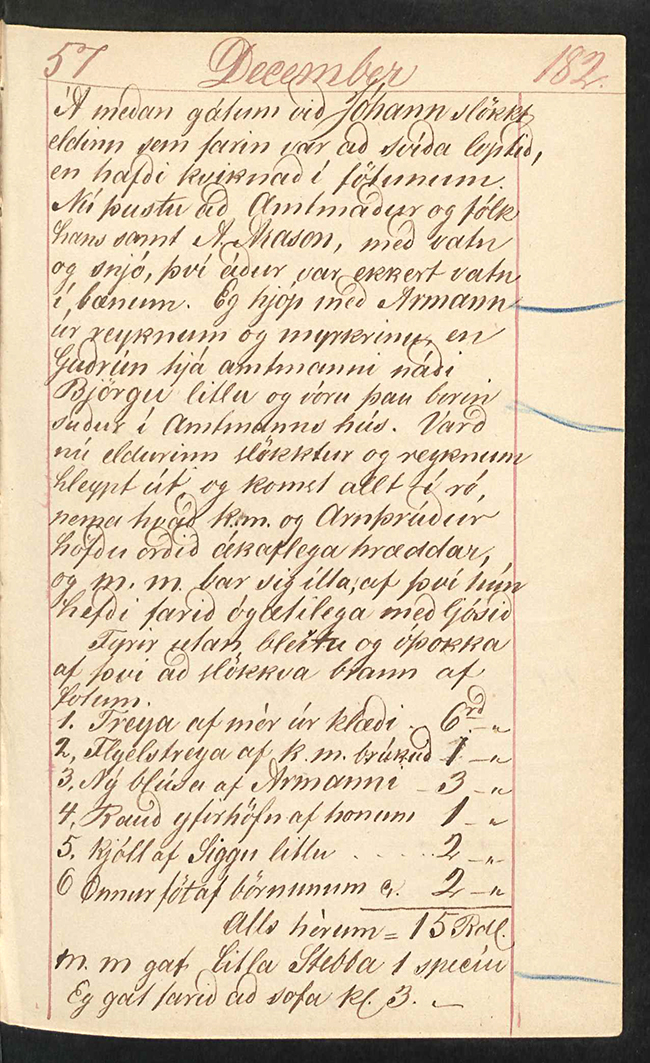 57 December 182.
Á meðan gátum við Jóhann slökkt
eldinn sem farin var að svíða loptið,
en hafði kviknað í fötunum.
Nú þustu að Amtmaður og fólk
hans samt A. Mason, með vatn
og snjó, því áður var ekkert vatn
í bænum. Eg hjóp með Armann
úr reyknum og myrkrinu, en
Guðrún hjá amtmanni náði
Björgu litlu og vóru þau borin
suður í Amtmanns hús. Varð
nú eldurinn slökktur og reyknum
hleypt út, og komst allt í ró,
nema hvað k.m. og Arnþrúður
höfðu orðið ákaflega hræddar,
og m. m. bar sig illa, af því hún
hefði farið ógætilega með ljósið
Fyrir utan bleitu og óþokka
af því að slökkva brann af
fötum.
1. Treya af mér úr klæði - 6rd - „
2, Flyelstreya af k.m. brúkuð 1 - „
3, Ný blúsa af Armanni - 3 - „
4, Rauð yfirhöfn af honum 1 - „
5. Kjóll af Siggu litlu ..... 2 - „
6 Önnur föt af börnunum c. 2 - „
Alls hérum = 15 Rdl.
m. m gaf litla Stebba 1 specíu
Eg gat farið að sofa kl. 3. -